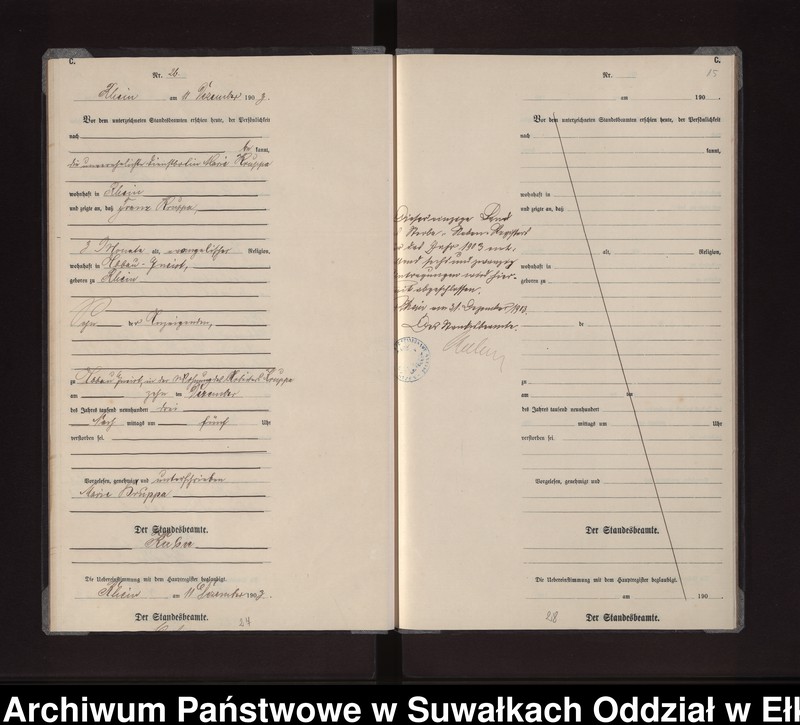 C.
Nr. 26.
Rhein am 11 Dezember 1903.
Vor dem unterzeichneten Standesbeamten erschien heute, der Persönlichkeit
nach
be kannt,
die unverehelichte Dienstbotin Marie Kruppa
wohnhaft in Rhein
und zeigte an, daß Franz Kruppa,
3 Monate alt, evangelischer Religion,
wohnhaft in Abbau
geboren zu Rhein
Sohn der Anzeigenden,
zu Abbau in der Wohnung des Kruppa
am zehn ten Dezember
des Jahres tausend neunhundert drei
Nach mittags um fünf Uhr
verstorben sei.
Vorgelesen, genehmigt und unterschrieben
Marie Kruppa
Der Standesbeamte.
Die Uebereinstimmung mit dem Hauptregister beglaubigt.
Rhein am 11 Dezember 1903.
Der Standesbeamte.
24
Neben-Register
das Jahr 1903 mit
sechs und zwanzig
Eintragungen wird hier-
mit abgeschlossen.
Rhein am 31. Dezember 1903.
Der Standesbeamte.
C.
Nr.
15
am 190 .
Vor dem unterzeichneten Standesbeamten erschien heute, der Persönlichkeit
nach
kannt,
wohnhaft in
und zeigte an, daß
alt, Religion,
wohnhaft in
geboren zu
de
zu
am ten
des Jahres tausend neunhundert
mittags um Uhr
verstorben sei.
Vorgelesen, genehmigt und
Der Standesbeamte.
Die Uebereinstimmung mit dem Hauptregister beglaubigt.
am 190 .
Der Standesbeamte.
Archiwum Państwowe w Suwałkach Oddział w Ełk